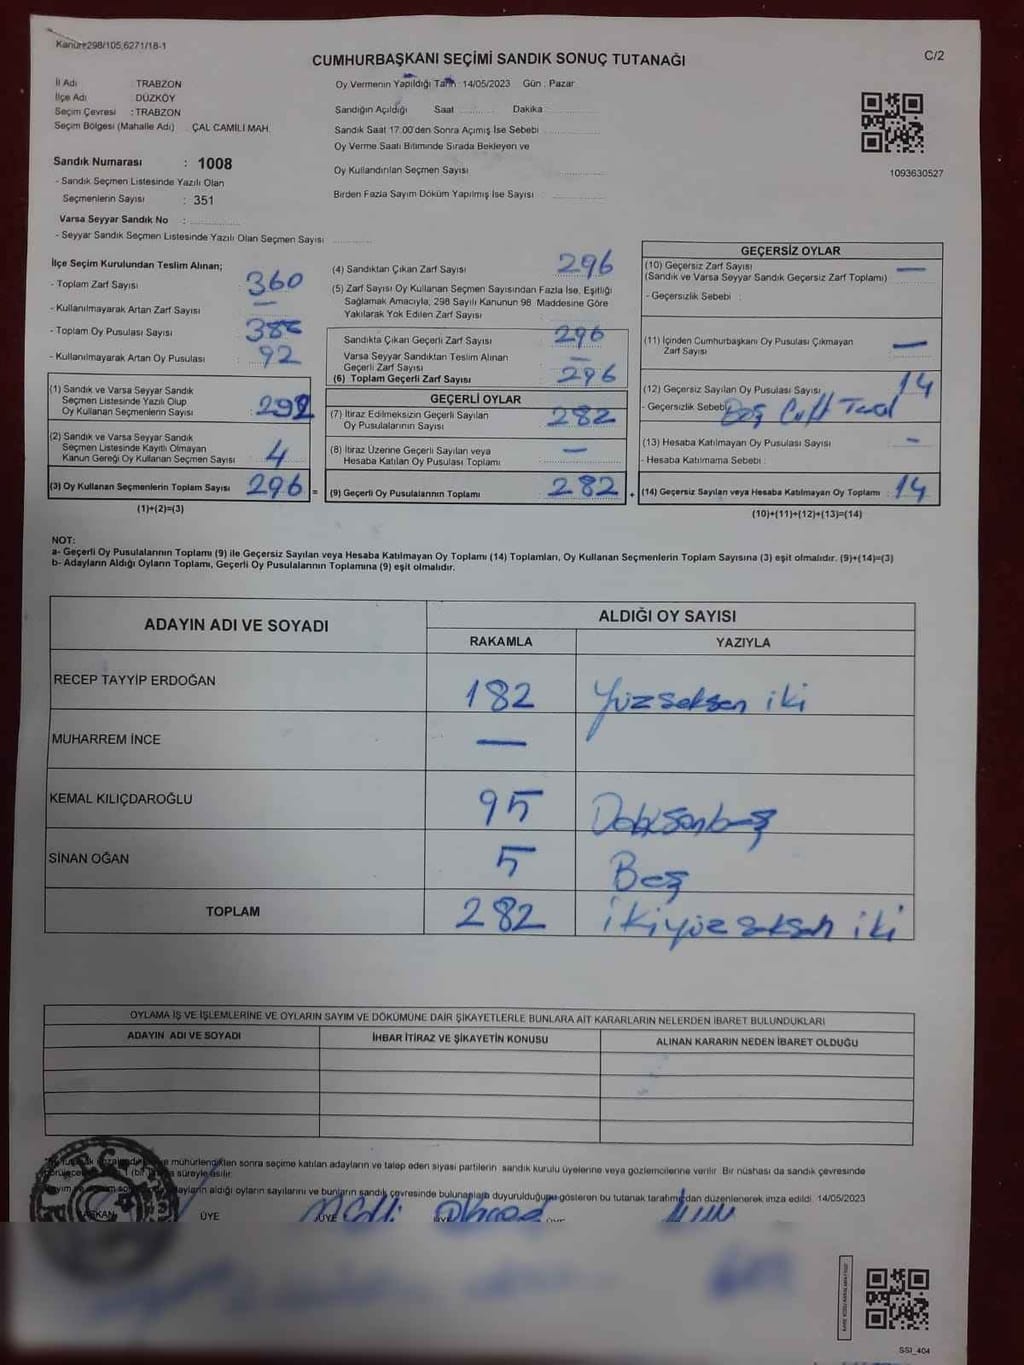 Kanun298/105,6271/18-1
CUMHURBAŞKANI SEÇİMİ SANDIK SONUÇ TUTANAĞI
C/2
İl Adı : TRABZON
İlçe Adı : DÜZKÖY
Seçim Çevresi : TRABZON
Seçim Bölgesi (Mahalle Adı) : ÇAL CAMİLİ MAH.
Sandık Numarası : 1008
- Sandık Seçmen Listesinde Yazılı Olan
Seçmenlerin Sayısı : 351
Varsa Seyyar Sandık No :
- Seyyar Sandık Seçmen Listesinde Yazılı Olan Seçmen Sayısı
Oy Vermenin Yapıldığı Tarih : 14/05/2023 Gün : Pazar
Sandığın Açıldığı Saat Dakika
Sandık Saat 17.00'den Sonra Açımış İse Sebebi
Oy Verme Saati Bitiminde Sırada Bekleyen ve
Oy Kullandırılan Seçmen Sayısı
Birden Fazla Sayım Döküm Yapılmış İse Sayısı
1093630527
İlçe Seçim Kurulundan Teslim Alınan;
- Toplam Zarf Sayısı : 360
- Kullanılmayarak Artan Zarf Sayısı : —
- Toplam Oy Pusulası Sayısı
- Kullanılmayarak Artan Oy Pusulası : 92
(1) Sandık ve Varsa Seyyar Sandık
Seçmen Listesinde Yazılı Olup
Oy Kullanan Seçmenlerin Sayısı : 292
(2) Sandık ve Varsa Seyyar Sandık
Seçmen Listesinde Kayıtlı Olmayan
Kanun Gereği Oy Kullanan Seçmen Sayısı : 4
(3) Oy Kullanan Seçmenlerin Toplam Sayısı : 296
(1)+(2)=(3)
(4) Sandıktan Çıkan Zarf Sayısı : 296
(5) Zarf Sayısı Oy Kullanan Seçmen Sayısından Fazla İse, Eşitliği
Sağlamak Amacıyla, 298 Sayılı Kanunun 98 Maddesine Göre
Yakılarak Yok Edilen Zarf Sayısı
Sandıkta Çıkan Geçerli Zarf Sayısı : 296
Varsa Seyyar Sandıktan Teslim Alınan
Geçerli Zarf Sayısı : —
(6) Toplam Geçerli Zarf Sayısı : 296
GEÇERLİ OYLAR
(7) İtiraz Edilmeksizin Geçerli Sayılan
Oy Pusulalarının Sayısı : 282
(8) İtiraz Üzerine Geçerli Sayılan veya
Hesaba Katılan Oy Pusulası Toplamı : —
= (9) Geçerli Oy Pusulalarının Toplamı : 282
GEÇERSİZ OYLAR
(10) Geçersiz Zarf Sayısı : —
(Sandık ve Varsa Seyyar Sandık Geçersiz Zarf Toplamı)
- Geçersizlik Sebebi :
(11) İçinden Cumhurbaşkanı Oy Pusulası Çıkmayan
Zarf Sayısı : —
(12) Geçersiz Sayılan Oy Pusulası Sayısı : 14
- Geçersizlik Sebebi : Boş Çift
(13) Hesaba Katılmayan Oy Pusulası Sayısı : —
- Hesaba Katılmama Sebebi :
+ (14) Geçersiz Sayılan veya Hesaba Katılmayan Oy Toplamı : 14
(10)+(11)+(12)+(13)=(14)
NOT:
a- Geçerli Oy Pusulalarının Toplamı (9) ile Geçersiz Sayılan veya Hesaba Katılmayan Oy Toplamı (14) Toplamları, Oy Kullanan Seçmenlerin Toplam Sayısına (3) eşit olmalıdır. (9)+(14)=(3)
b- Adayların Aldığı Oyların Toplamı, Geçerli Oy Pusulalarının Toplamına (9) eşit olmalıdır.
ADAYIN ADI VE SOYADI ALDIĞI OY SAYISI
RAKAMLA YAZIYLA
RECEP TAYYİP ERDOĞAN 182 Yüzseksen iki
MUHARREM İNCE —
KEMAL KILIÇDAROĞLU 95 Doksanbeş
SİNAN OĞAN 5 Beş
TOPLAM 282 ikiyüz seksen iki
OYLAMA İŞ VE İŞLEMLERİNE VE OYLARIN SAYIM VE DÖKÜMÜNE DAİR ŞİKAYETLERLE BUNLARA AİT KARARLARIN NELERDEN İBARET BULUNDUKLARI
ADAYIN ADI VE SOYADI İHBAR İTİRAZ VE ŞİKAYETİN KONUSU ALINAN KARARIN NEDEN İBARET OLDUĞU
mühürlendikten sonra seçime katılan adayların ve talep eden siyasi partilerin sandık kurulu üyelerine veya gözlemcilerine verilir. Bir nüshası da sandık çevresinde
süreyle asılır.
adayların aldığı oyların sayılarını ve bunların sandık çevresinde bulunanlara duyurulduğunu gösteren bu tutanak tarafımızdan düzenlenerek imza edildi. 14/05/2023
BAŞKAN ÜYE ÜYE ÜYE
SSI_404